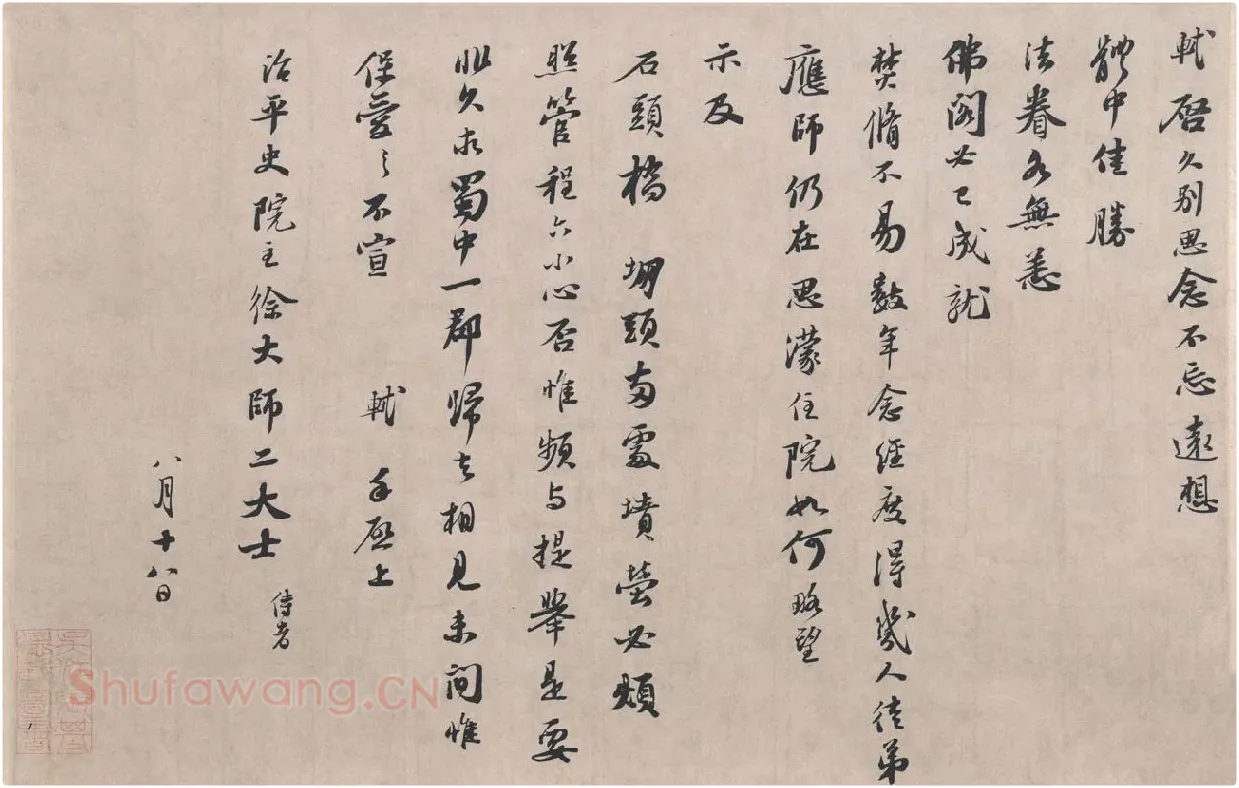 軾啓久别思念不忘遠想
體中佳勝
法眷各無恙
佛閣必已成就
焚脩不易數年念經度得幾人徒弟
應師仍在思濛住院如何略望
示及
石頭橋堋頭兩處墳塋必煩
照管程六小心否惟頻與提舉是要
非久求蜀中一郡歸去相見未間惟
保愛之不宣 軾手啓上
治平史院主徐大師二大士 侍者
八月十八日
Shufawang.CN